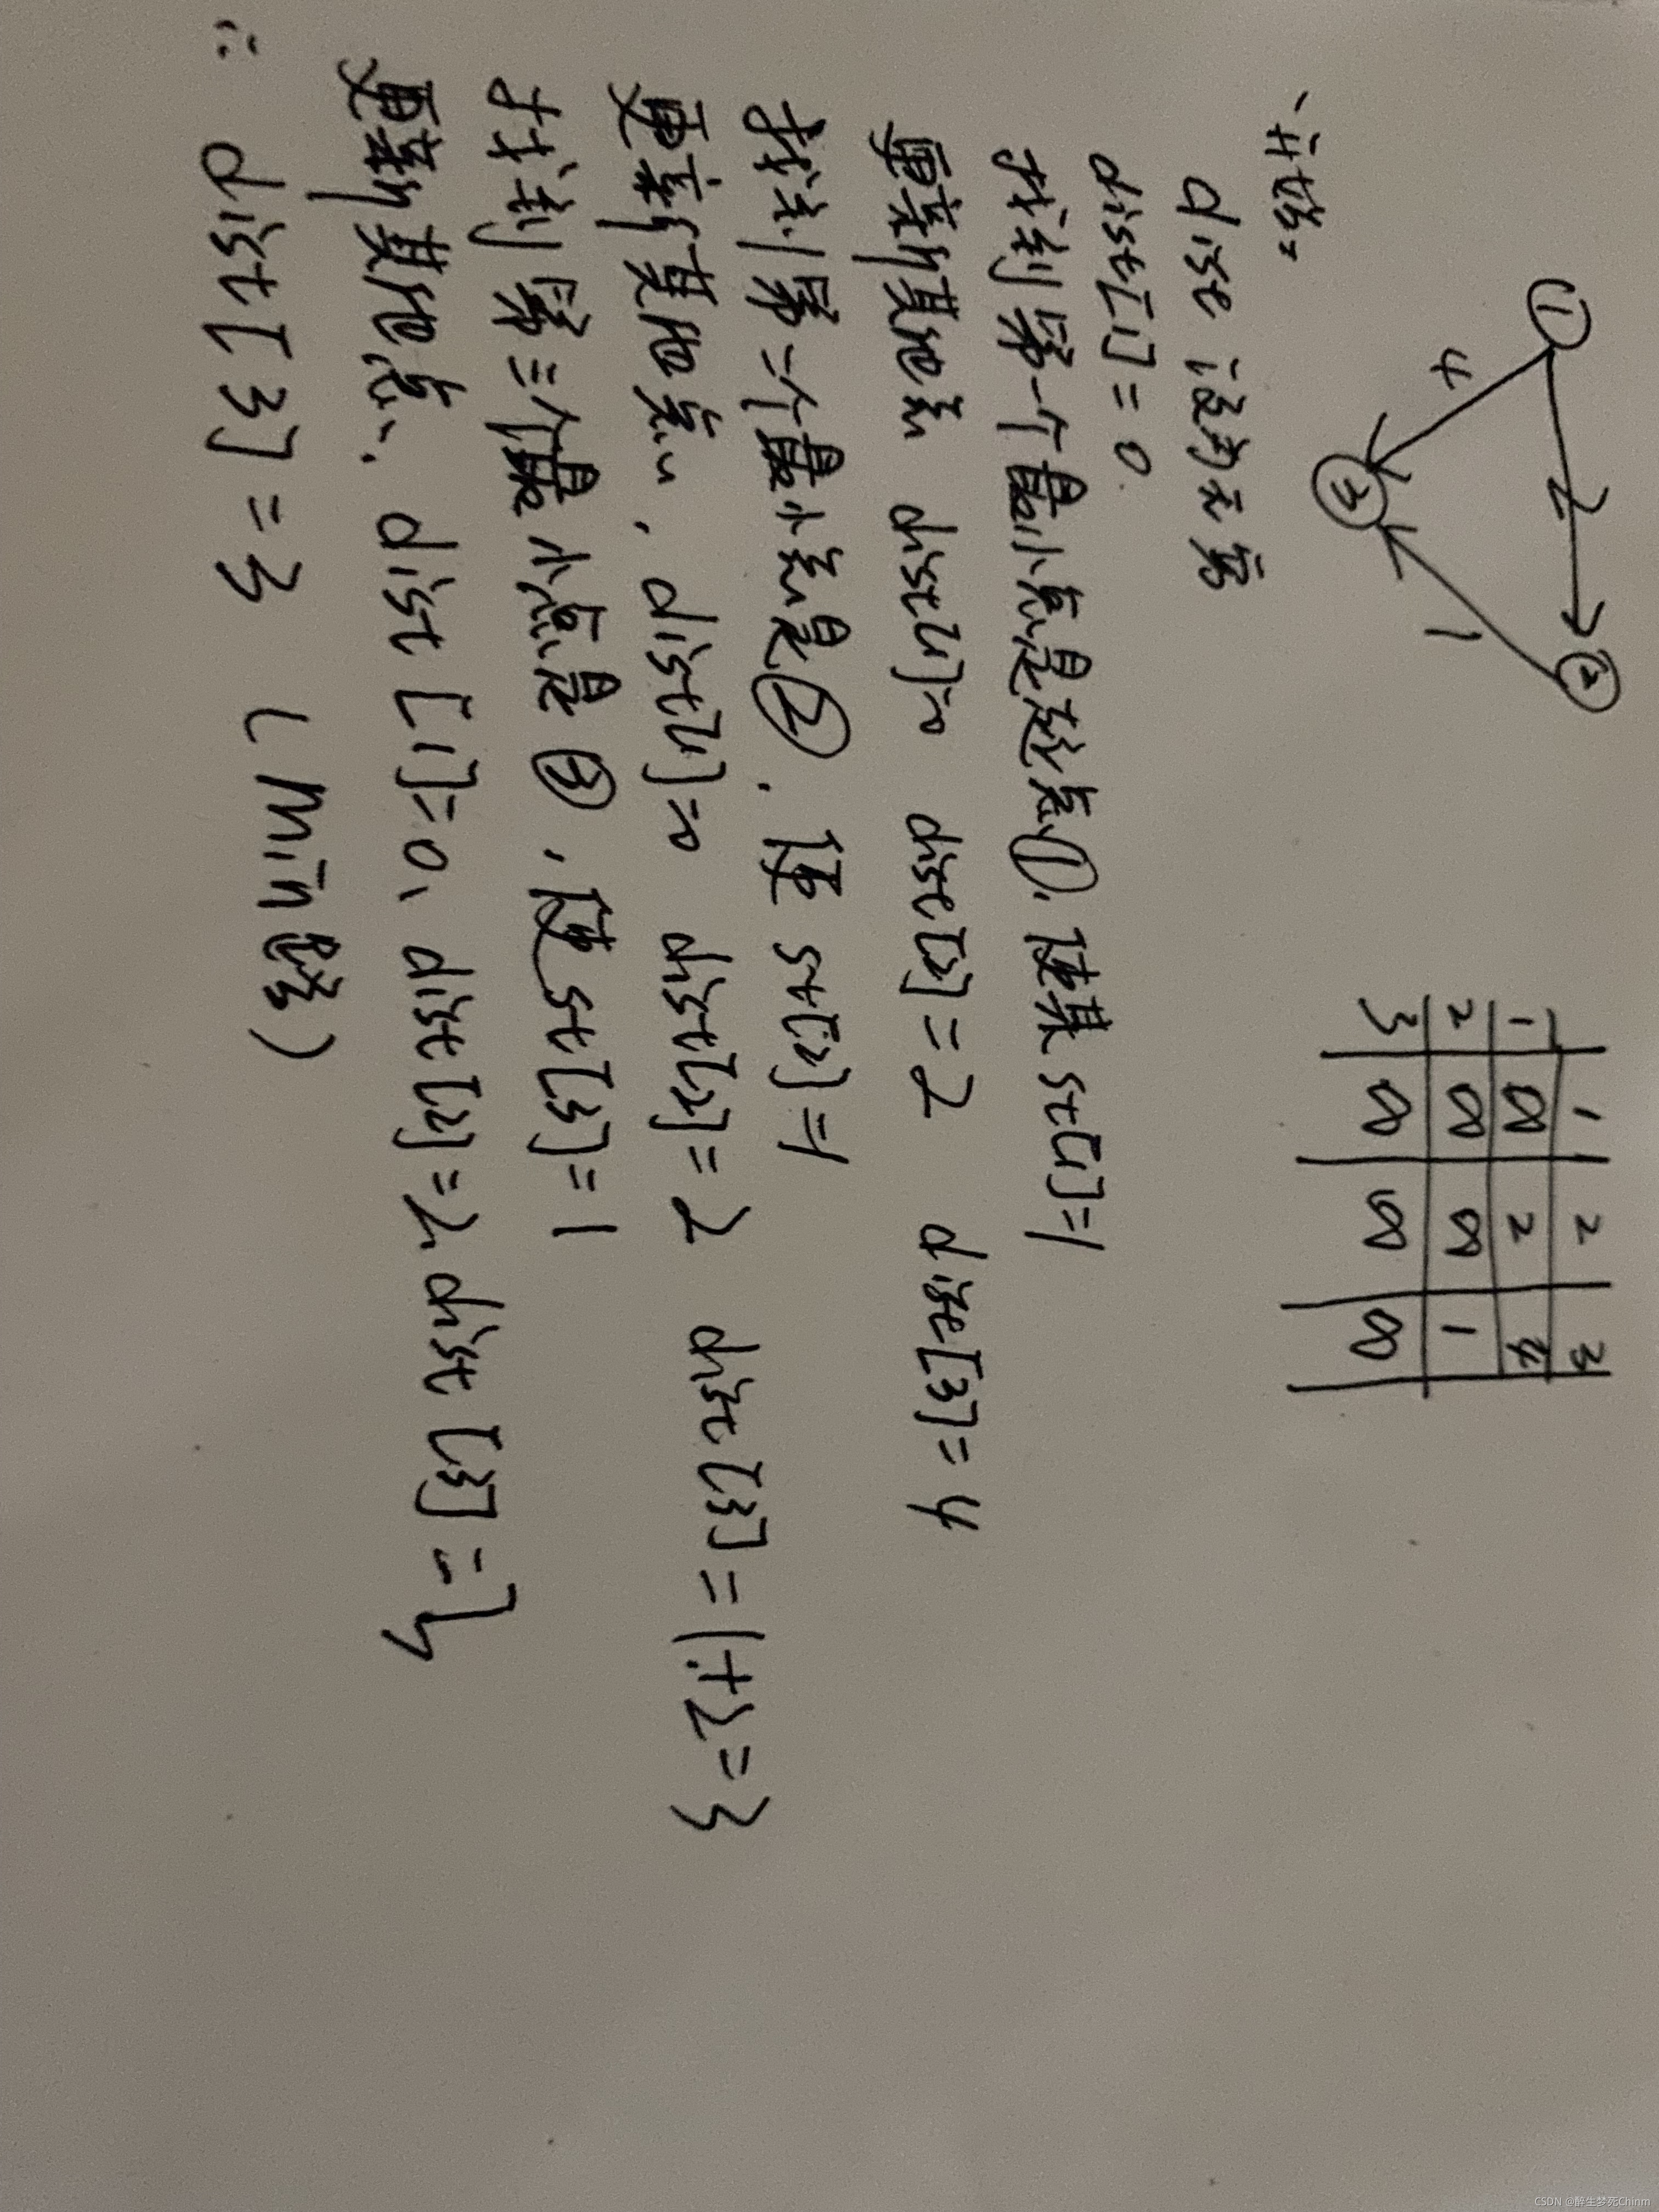 ① 2 ②
4 1
③
1 2 3
1 ∞ 2 4
2 ∞ ∞ 1
3 ∞ ∞ ∞
一开始:
dist 设为无穷
dist[1]=0
找到第一个最小点是点①, 其 st[1]=1
更新其他点 dist[1]=0 dist[2]=2 dist[3]=4
找到第二个最小点是②, 把 st[2]=1
更新其他点, dist[1]=0 dist[2]=2 dist[3]=1+2=3
找到第三个最小点是③, 把 st[3]=1
更新其他点, dist[1]=0, dist[2]=2, dist[3]=3
∴ dist[3]=3 (min)
CSDN @醉生梦死Chinm